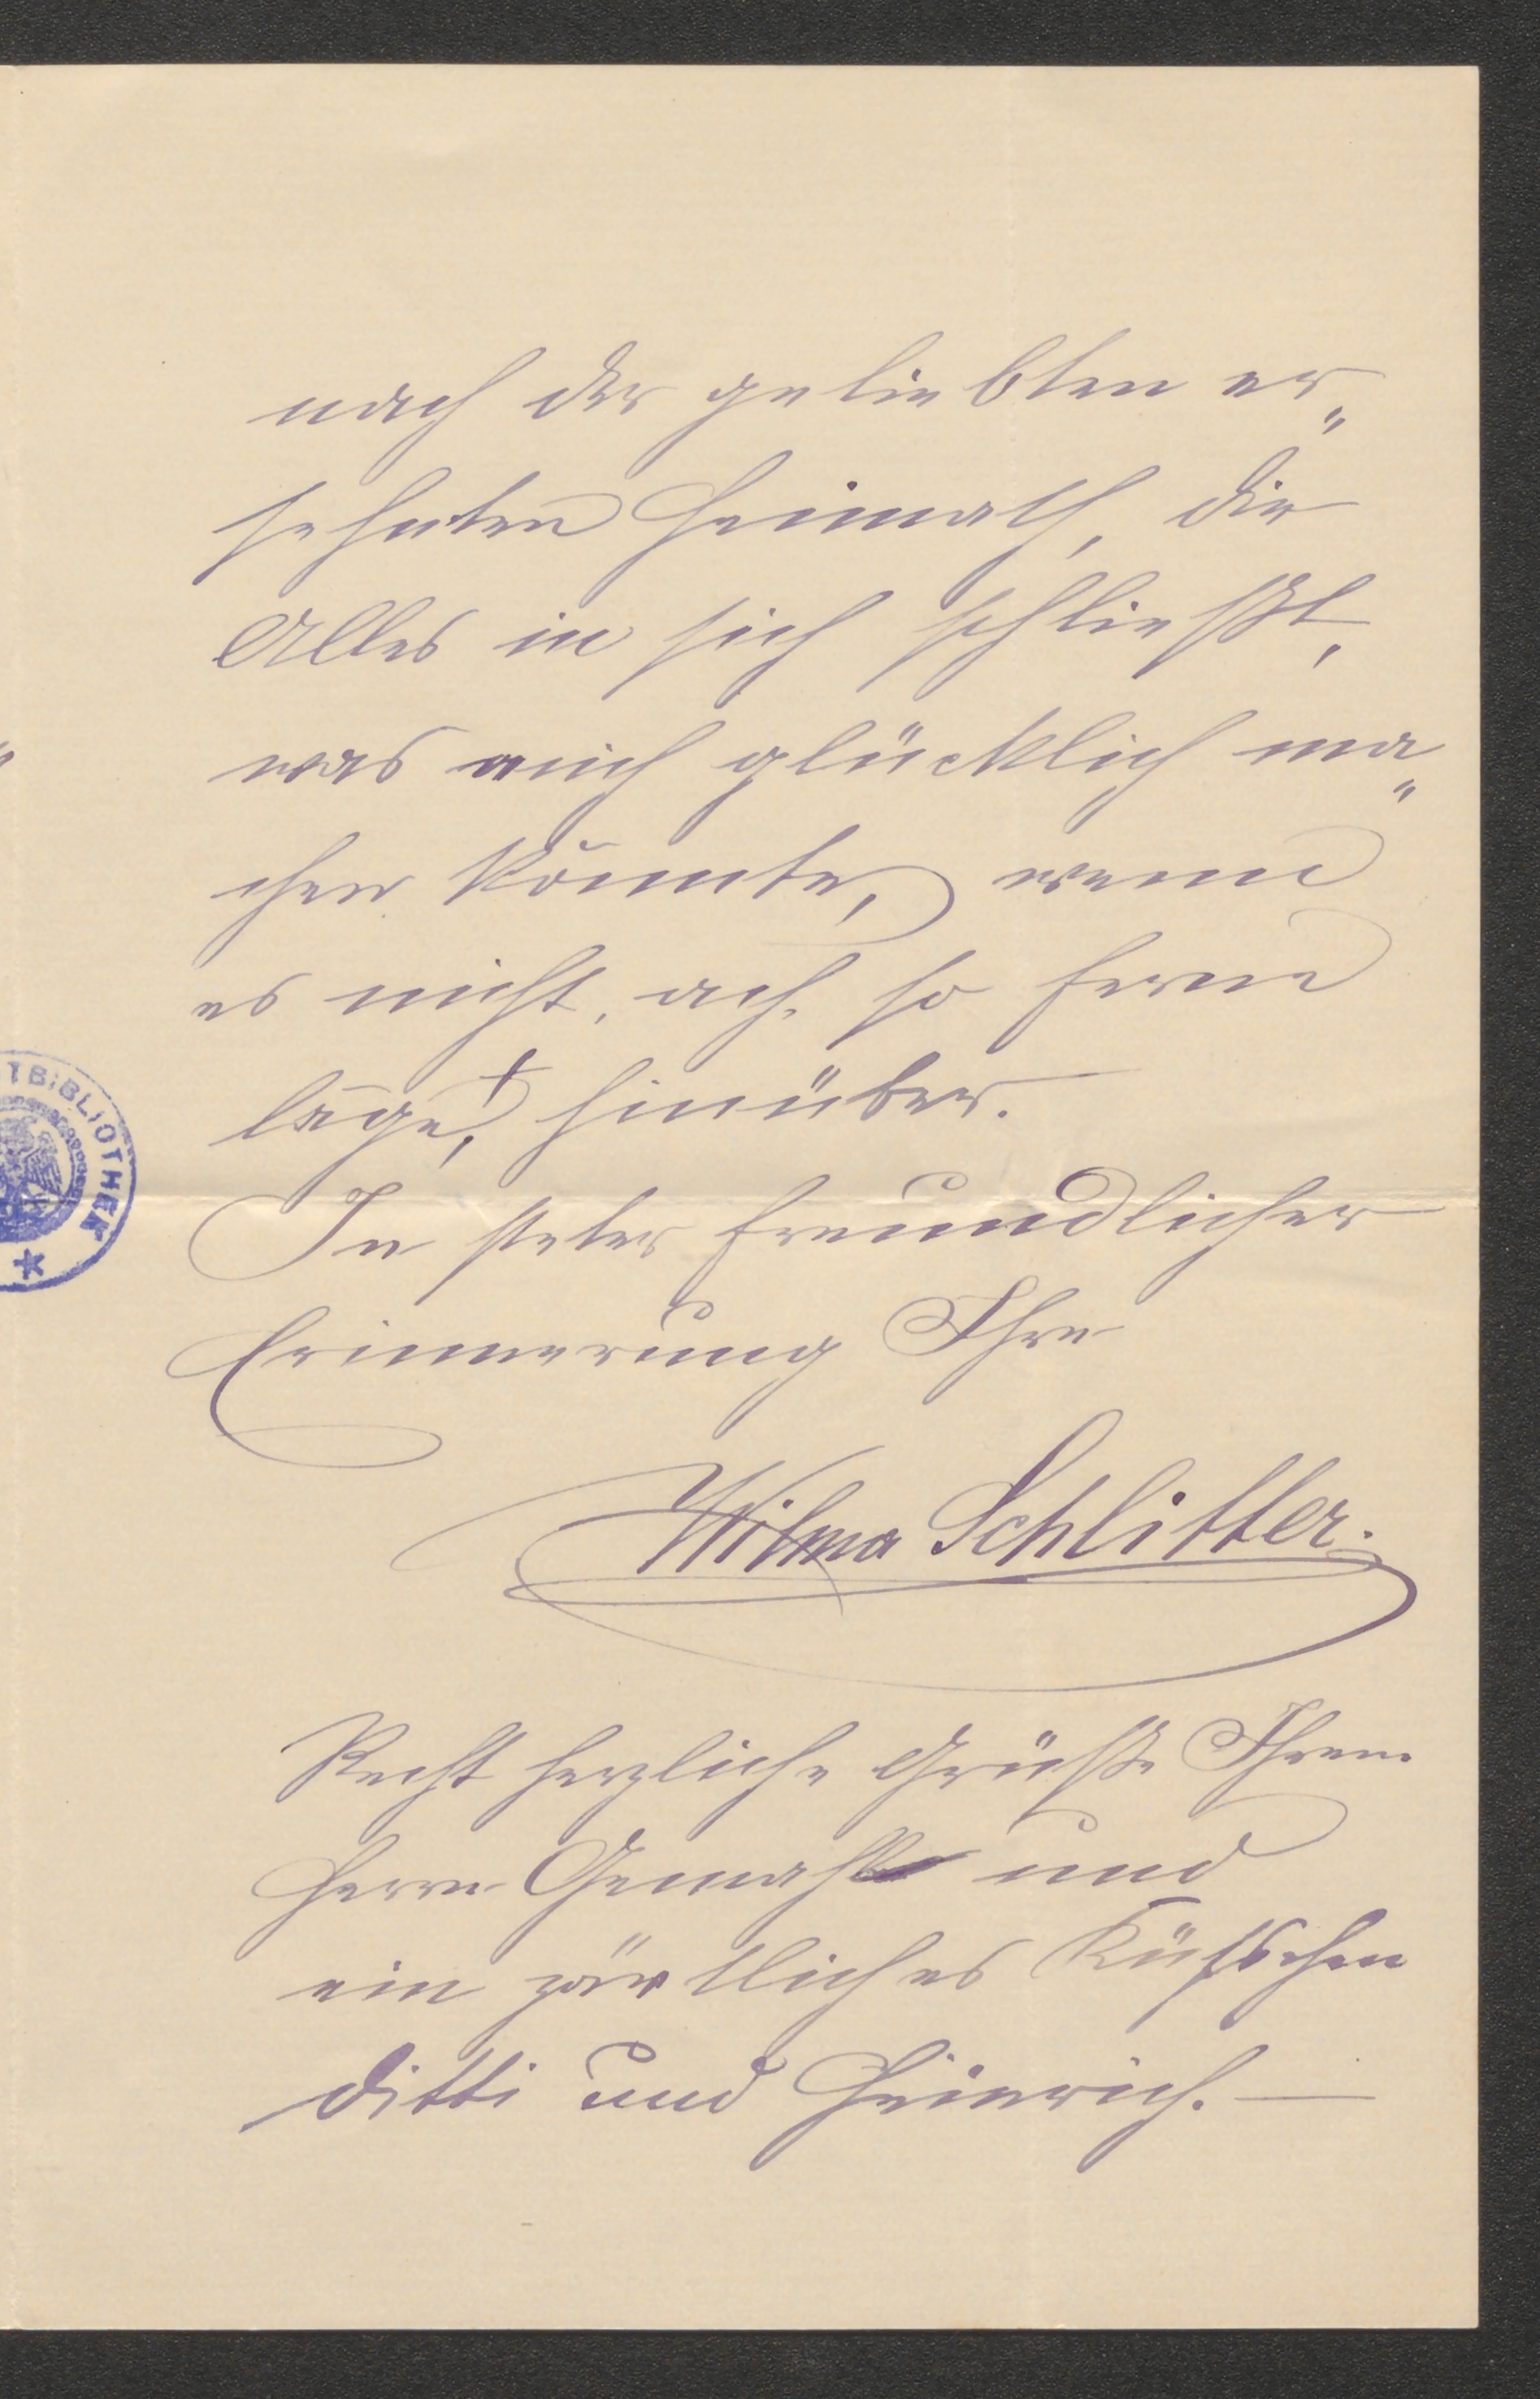 nach der geliebten er„
sehnten Heimath, die
Alles in sich schließt,
was mich glücklich ma„
chen könnte, wenn
es nicht, ach, so ferne
läge, hinüber.
In steter freundlicher
Erinnerung Ihre
Wilma Schlitter.
Recht herzliche Grüße Ihrem
Herrn Gemahl und
ein zärtliches Küßchen
Ditti und Heinrich. —
TBIBLIOTHEK